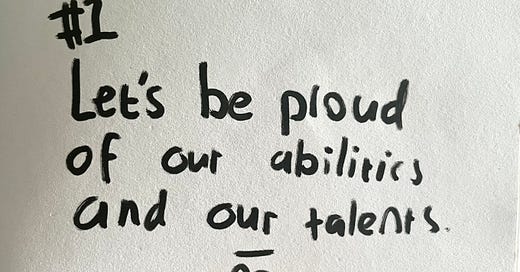 #1
Let's be proud
of our abilities
and our talents.